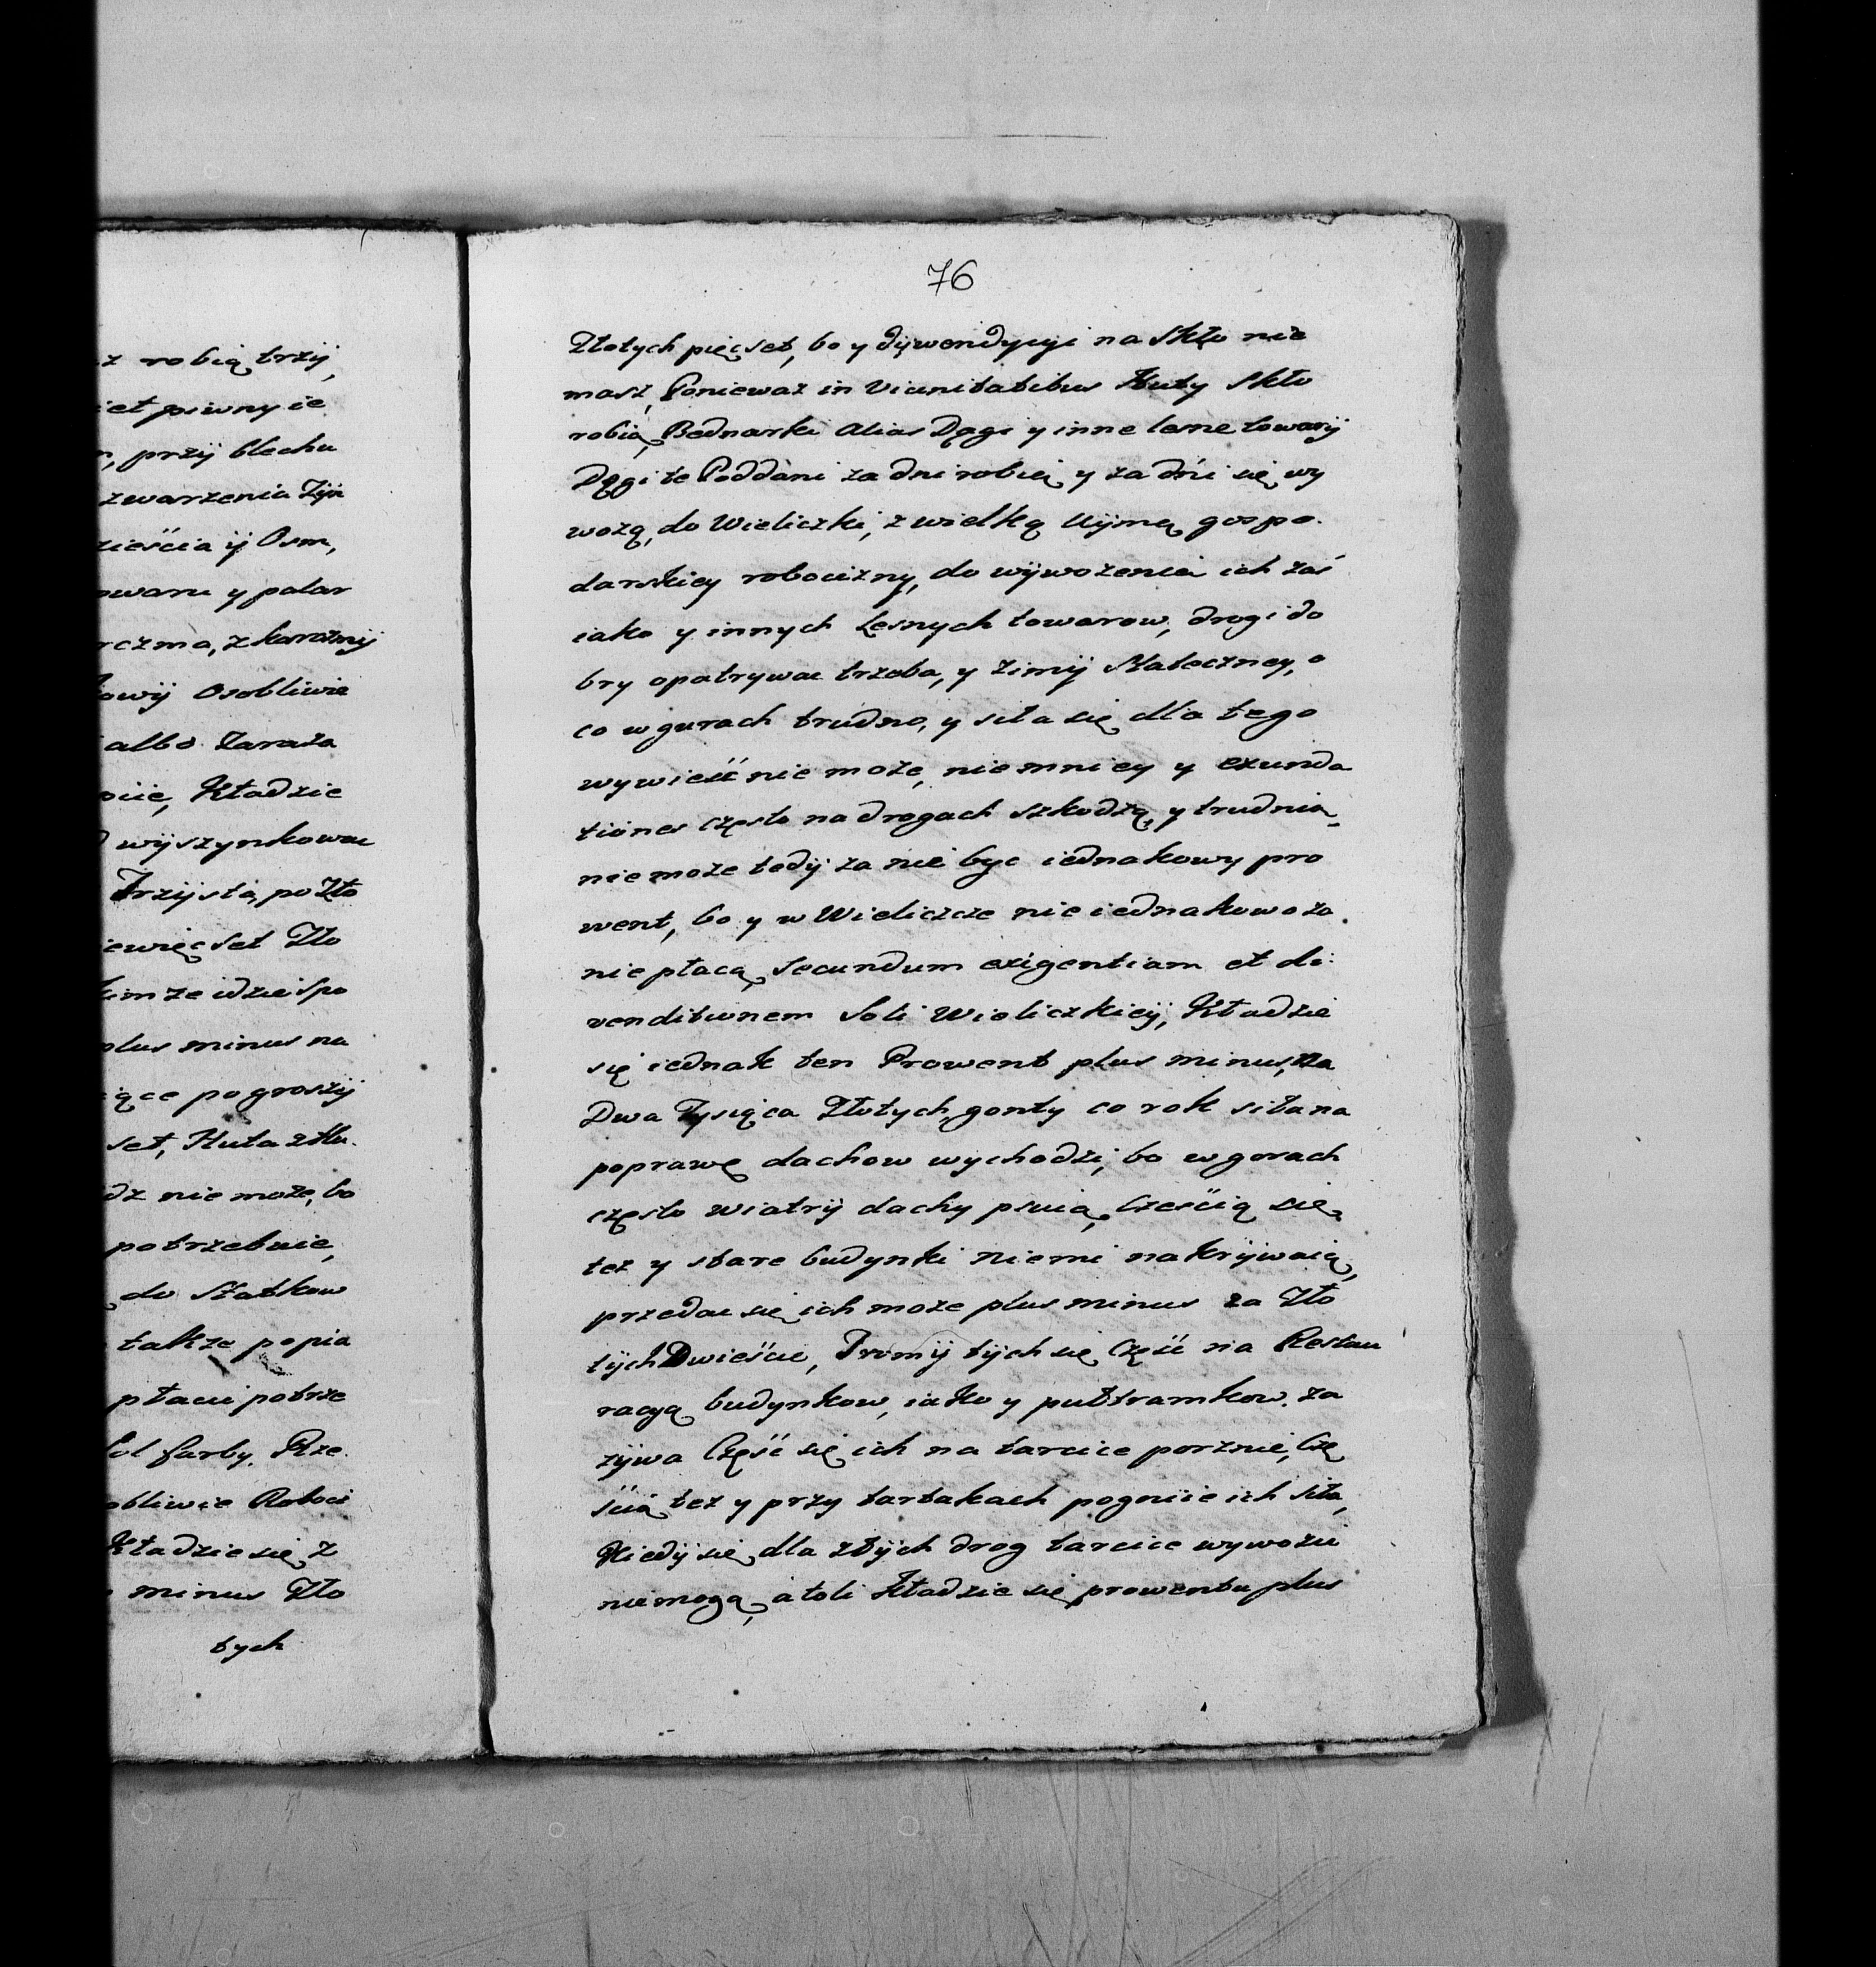 z robią trzy,
iet piwny ie
przÿ blechu
zwarzenia Zÿta
zieścia ÿ Osm,
owaru y palar
rczma, z karczmÿ
Osobliwie
albo Zaraza
Kładzie
wÿszynkowac
Trzÿsta, po Zło
iewięcset Zło
idzie Spo
plus minus na
iące po groszÿ
set, Huta
dz nie moze, bo
potrzebuie,
do Statkow
takze popia
płaci potrze
farby. Rze
obliwie Roboci
Kładzie się z
minus Zło
tych
76
Złotych pięcset, bo y dÿwendycyi na Skło nie
masz, Poniewaz in Vicinitatibus Huty Skło
robią, Bednarka alias Dęgi y inne lesne towarÿ
Dęgi te Poddani za dni robią y za dni się wy
wozą, do Wieliczki, z wielką Uÿmą gospo-
darskiey robocizny, do wÿwozenia ich zaś
iako y innych Lesnych towarow, drogi do
bry opatrywac trzeba, y zimÿ Stateczney, o
co w gurach trudno, y siła się dla tego
wywieść nie moze, niemniey y exunda
tiones często na drogach szkodzą, y trudnią,
nie moze tedÿ za nie byc iednakowy pro
went, bo y w Wieliczce nie iednakowo za
nie płacą, Secundum exigentiam et di-
venditionem Soli Wieliczkieÿ, Kładzie
się iednak ten Prowent plus minus, na
Dwa Tysiąca Złotych, gonty co rok siła na
poprawę dachow wychodzi, bo w gorach
często wiatrÿ dachy psuią, Cześcią się
tez y stare budynki niemi nakrÿwaią,
przedac się ich moze plus minus za Zło
tÿch Dwieście, Tramÿ tÿch się Część na Restau
racyą budynkow, iako y putstramkow za
zÿwa Część się ich na tarcice porznie, Czę
ścią tez y przy tartakach pogniie ich siła,
Kiedÿ się dla złÿch drog tarcice wywozic
nie mogą, a toli Kładzie się prowentu plus